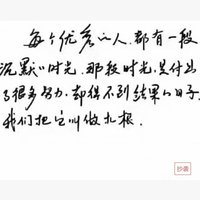 每个优秀的人，都有一段
沉默的时光。那段时光，是付出
了很多努力，却得不到结果的日子，
我们把它叫做扎根。